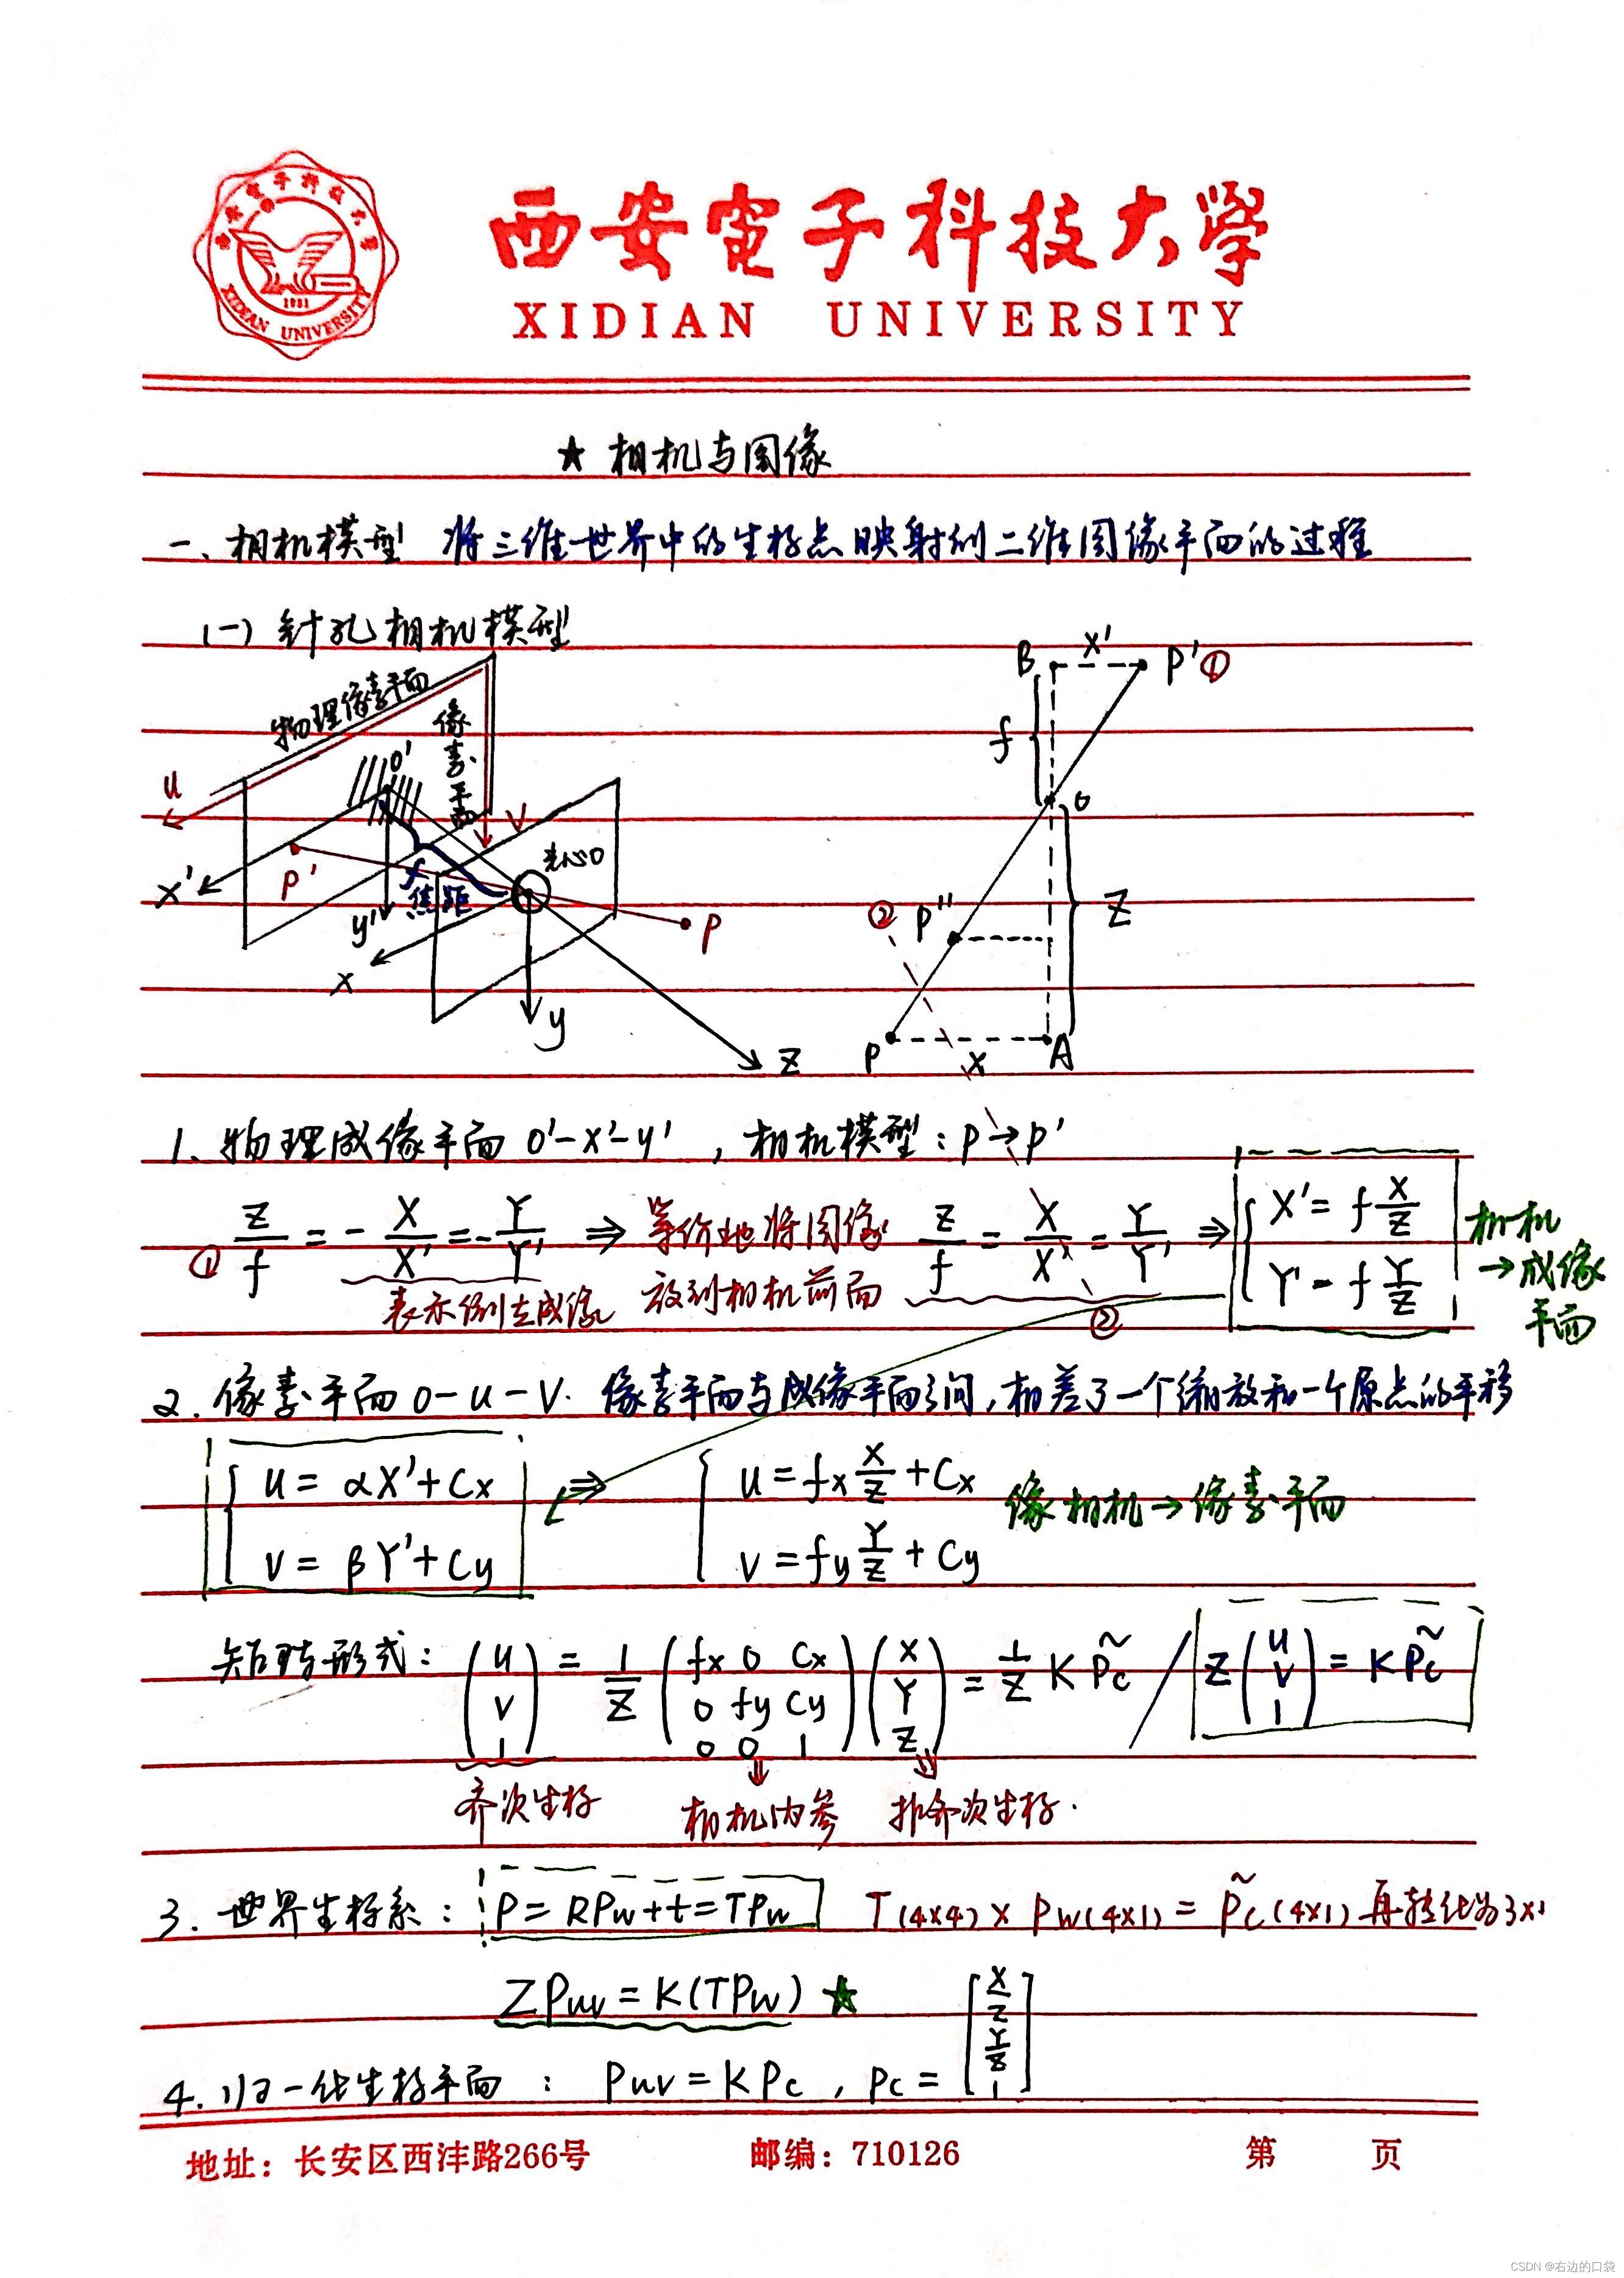 西安電子科技大學
XIDIAN UNIVERSITY
1931
XIDIAN UNIVERSITY
★ 相机与图像
一、相机模型 将三维世界中的坐标点映射到二维图像平面的过程
(一) 针孔相机模型
物理像素平面
像素平面
O'
u
v
x'
P'
y'
f
焦距
光心O
P
x
y
z
B
X'
P' ①
f
O
② P''
Z
P
X
A
1. 物理成像平面 O'-x'-y' , 相机模型: P → P'
① Z/f = - X/X' = - Y/Y' ⇒ 等价地将图像放到相机前面 Z/f = X/X' = Y/Y' ⇒ { X' = f X/Z
Y' = f Y/Z
表示倒立成像
②
相机→成像平面
2. 像素平面 O-u-v. 像素平面与成像平面之间, 相差了一个缩放和一个原点的平移
{ u = αX' + Cx ⇒ { u = fx X/Z + Cx 像相机→像素平面
v = βY' + Cy v = fy Y/Z + Cy
矩阵形式: (u v 1) = 1/Z (fx 0 Cx 0 fy Cy 0 0 1) (X Y Z) = 1/Z K P̃c / Z (u v 1) = K P̃c
齐次坐标 相机内参 非齐次坐标.
3. 世界坐标系: P = RPw + t = TPw T(4×4) × Pw(4×1) = P̃c(4×1) 再转化为3×1
ZPuv = K(TPw) ★
4. 归一化坐标平面 : Puv = KPc , Pc = [X/Z Y/Z 1]
地址: 长安区西沣路266号 邮编: 710126 第 页
CSDN @右边的口袋